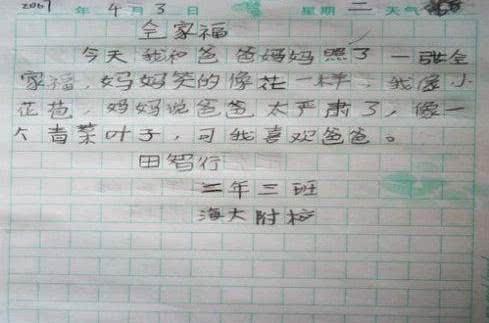 2007年 4月 3日 星期 二 天气
全家福
今天我和爸爸妈妈照了一张全
家福，妈妈笑的像花一样，我像小
花苞，妈妈说爸爸太严肃了，像一
个青菜叶子，可我喜欢爸爸。
田智行
二年三班
海大附校